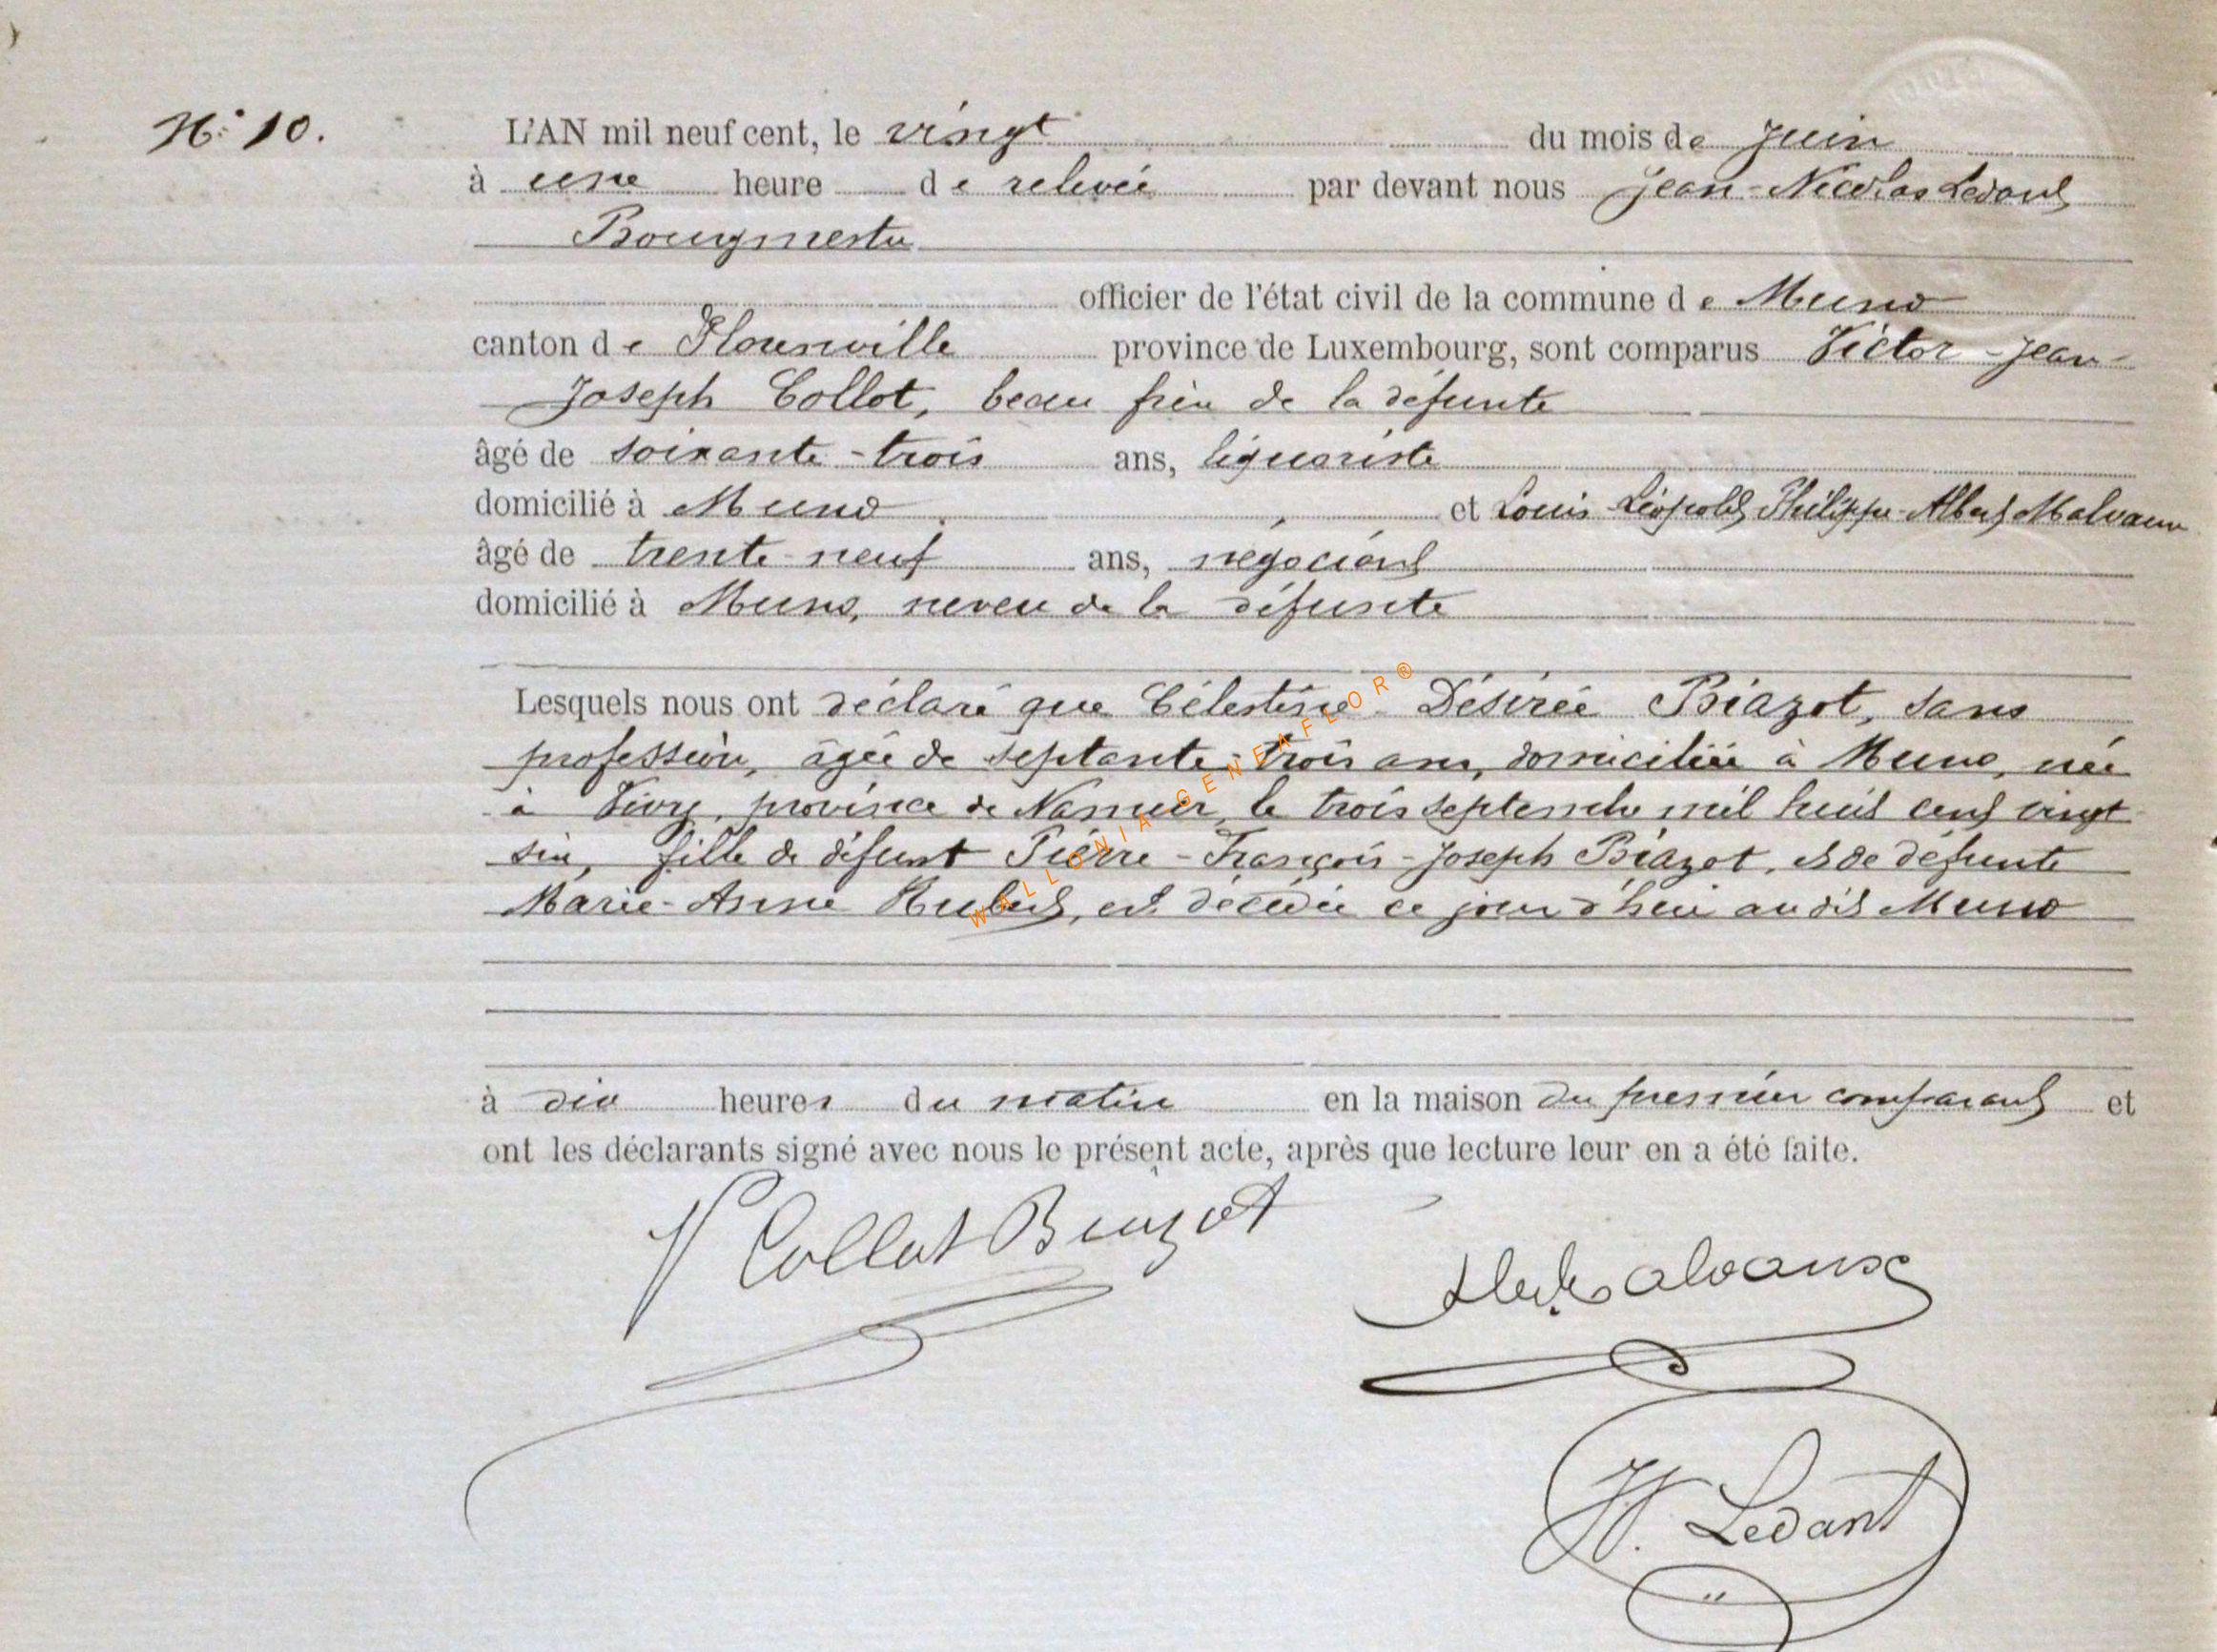 N° 10.
L'AN mil neuf cent, le vingt du mois de Juin
à une heure de relevée par devant nous Jean-Nicolas Ledant
Bourgmestre
officier de l'état civil de la commune de Muno
canton de Florenville province de Luxembourg, sont comparus Victor-Jean-
Joseph Collot, beau frère de la défunte
âgé de soixante-trois ans, liquoriste
domicilié à Muno, et Louis-Léopold-Philippe-Albert Malvaux
âgé de trente-neuf ans, négociant
domicilié à Muno, neveu de la défunte
Lesquels nous ont déclaré que Célestine-Désirée Biazot, sans
profession, âgée de septante-trois ans, domiciliée à Muno, née
à province de Namur, le trois septembre mil huit cent vingt
six, fille de défunt Pierre-François-Joseph Biazot, et de défunte
Marie-Anne Hubert, est décédée ce jour d'hui au dit Muno
à dix heures du matin en la maison du premier comparant et
ont les déclarants signé avec nous le présent acte, après que lecture leur en a été faite.
V Collot Biazot
JN. Ledant
WALLONIA GENEAFLOR®